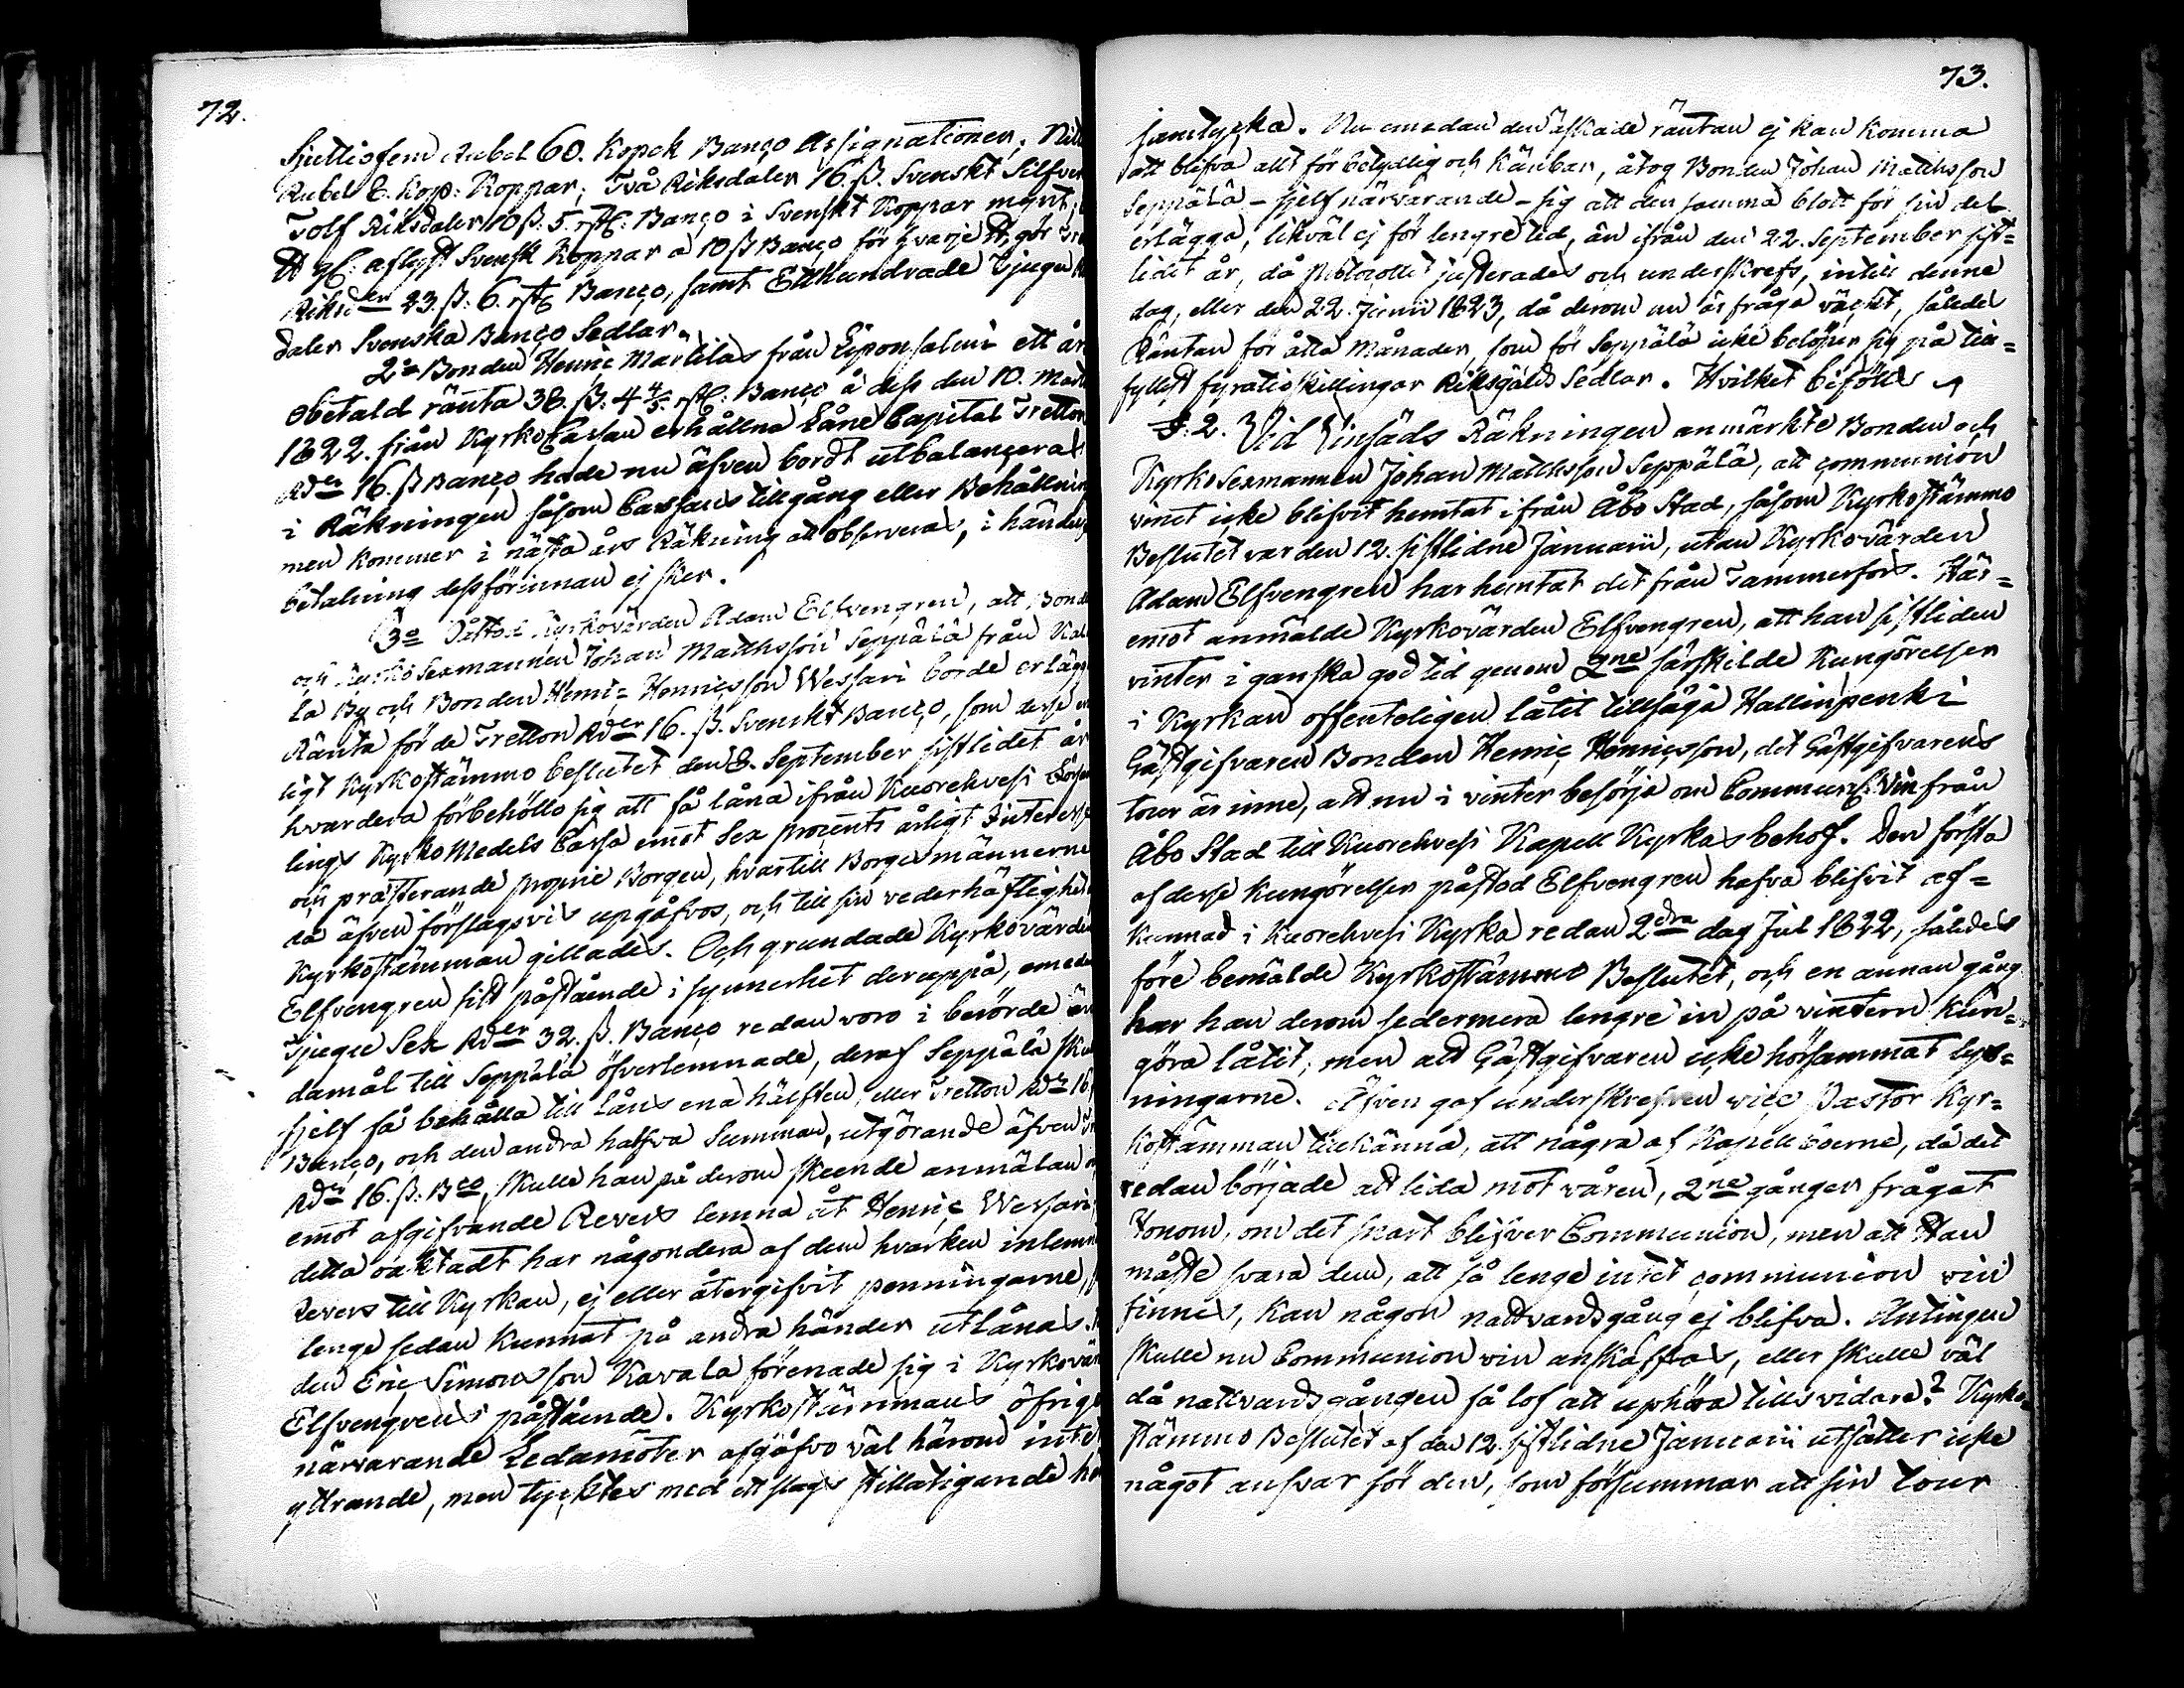 72.
Sjuttiofem Rubel 60. Kopek Banço Assignationer; Nitt
Rubel 8. Kop: Koppar; Två Riksdaler 16. ß. Svenskt Silfver
Tolf Riksdaler 10 ß. 5. rst: Banço i Svenskt Koppar mynt;
aflyst Svensk Koppar a 10 ß Banço för hvarje gör
Riksder 23. ß. 6. rst Banço, samt Etthundrade tjugu
daler Svenska Banço Sedlar.
2o Bonden Henric Marttilas från Eiponsalmi ett år
obetald ränta 38. ß. 4 4/5. rst: Banço å dess den 10. Mart
1822. från Kyrko Cassan erhållna Låne Capital Tretton
Rder 16. ß Banço hade nu äfven bordt utbalançeras
i Räkningen såsom Cassans tillgång eller Behållning
men kommer i nästa års Räkning att observeras, i händelse
betalning dessförinnan ej sker.
3o Påstod Kyrkovärden Adam Elfvengren, att Bonden
och KyrkoSexmannen Johan Matthsson Seppälä från
la By och Bonden Henric Henricsson Wessari borde erlägga
Ränta för de Tretton Rder 16. ß. Svenskt Banço, som desse en
ligt Kyrkostämmo beslutet den 8. September sistlidet år
hvardera förbehöllo sig att få låna ifrån Kuorehvesi
lings KyrkoMedels Cassa emot Sex procents årligt Interesse
och præsterande proprie Borgen, hvartill Borgesmännerne
då äfven förslagsvis upgåfvos, och till sin vederhäftighet
Kyrkostämman gillades. Och grundade Kyrkovärden
Elfvengren sitt påstående i synnerhet deruppå, emedan
Tjugu Sex Rder 32. ß. Banço redan voro i berörde än
damål till Seppälä öfverlemnade, deraf Seppälä skulle
sjelf få behålla till Låns ena hälften, eller Tretton Rdr 16.
Banço, och den andra halfva Summan, utgörande äfven
Rdr 16. ß. Bco, skulle han på derom skeende anmälan
emot afgifvande Revers lemna åt Henric Wessari;
detta oaktadt har någondera af dem hvarken inlemnat
Revers till Kyrkan, ej eller återgifvit penningarne,
lenge sedan kunnat på andra händer utlånas.
den Eric Simonsson Kavala förenade sig i Kyrkovär
Elfvengrens påstående. Kyrkostämmans öfrige
närvarande Ledamöter afgåfvo väl härom intet
yttrande, men tycktes med ett slags stillatigande
73.
samtycka. Nu emedan den äskade räntan ej kan komma
att blifva allt för betydlig och känbar, åtog Bonden Johan Matthsson
Seppälä - sjelf närvarande - sig att den samma blott för sin del
erlägga, likväl ej för lengre tid, än ifrån den 22. September sist=
lidit år, då Protocollet justerades och underskrefs, intill denne
dag, eller den 22. Junii 1823, då derom nu är fråga väckt, således
Räntan för åtta Månader, som för Seppälä icke belöper sig på till=
fyllest fyratio skillingar Riksgälds Sedlar. Hvilket biföllts
§. 2. Vid Vinsäds Räkningen anmärkte Bonden och
KyrkoSexmannen Johan Matthsson Seppälä, att communion
vinet icke blifvit hemtat ifrån Åbo Stad, såsom Kyrkostämmo
Beslutet var den 12. sistlidne Januarii, utan Kyrkovärden
Adam Elfvengren har hemtat det från Tammerfors. Här=
emot anmälde Kyrkovärden Elfvengren, att han sistliden
vinter i ganska god tid genom 2ne särskilde Kungörelser
i Kyrkan offenteligen låtit tillsäga Hallinpenki
Gästgifvaren Bonden Henric Henricsson, det Gästgifvarens
tour är inne, att nu i vinter besörja om Communs: Vin från
Åbo Stad till Kuorehvesi Kapell Kyrkas behof. Den första
af desse kungörelser påstod Elfvengren hafva blifvit af=
kunnad i Kuorehvesi Kyrka redan 2dra dag Jul 1822, således
före bemälde Kyrkostämmo Beslutet, och en annan gång
har han derom sedermera lengre in på vintern kun=
göra låtit; men att Gästgifvaren icke hörsammat lys=
ningarne. Äfven gaf underskrefven vice Pastor Kyr=
kostämman tillkänna, att några af Kapell boerne, då det
redan började att lida mot våren, 2ne gånger frågat
Honom, om det snart blifver Communion, men att Han
måste svara dem, att så lenge intet communion vin
finnes, kan någon nattvardsgång ej blifva. Antingen
skulle nu Communion vin anskaffas, eller skulle väl
då nattvardsgången få lof att uphöra tills vidare? Kyrko=
stämmo Beslutet af den 12. sistlidne Januarii utsätter icke
något ansvar för den, som försummar att sin tour